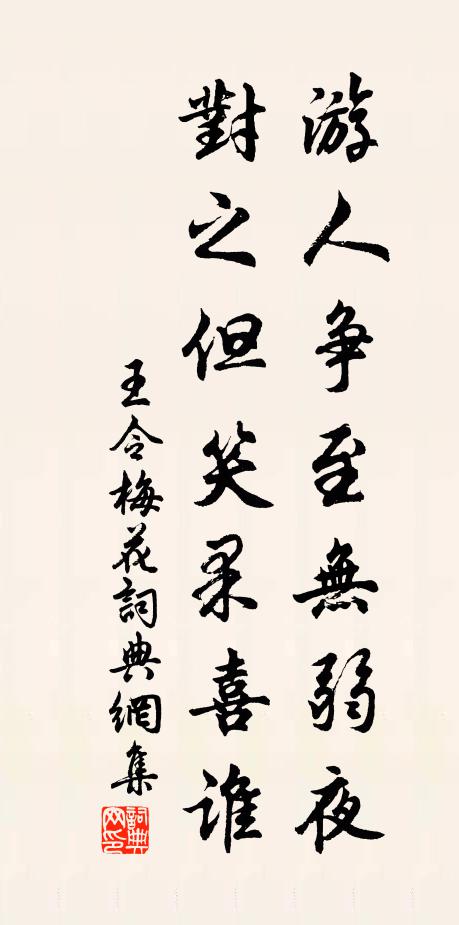 游人争至無弱夜
對之但笑果喜谁
王令梅花詞典網集
詞典网印